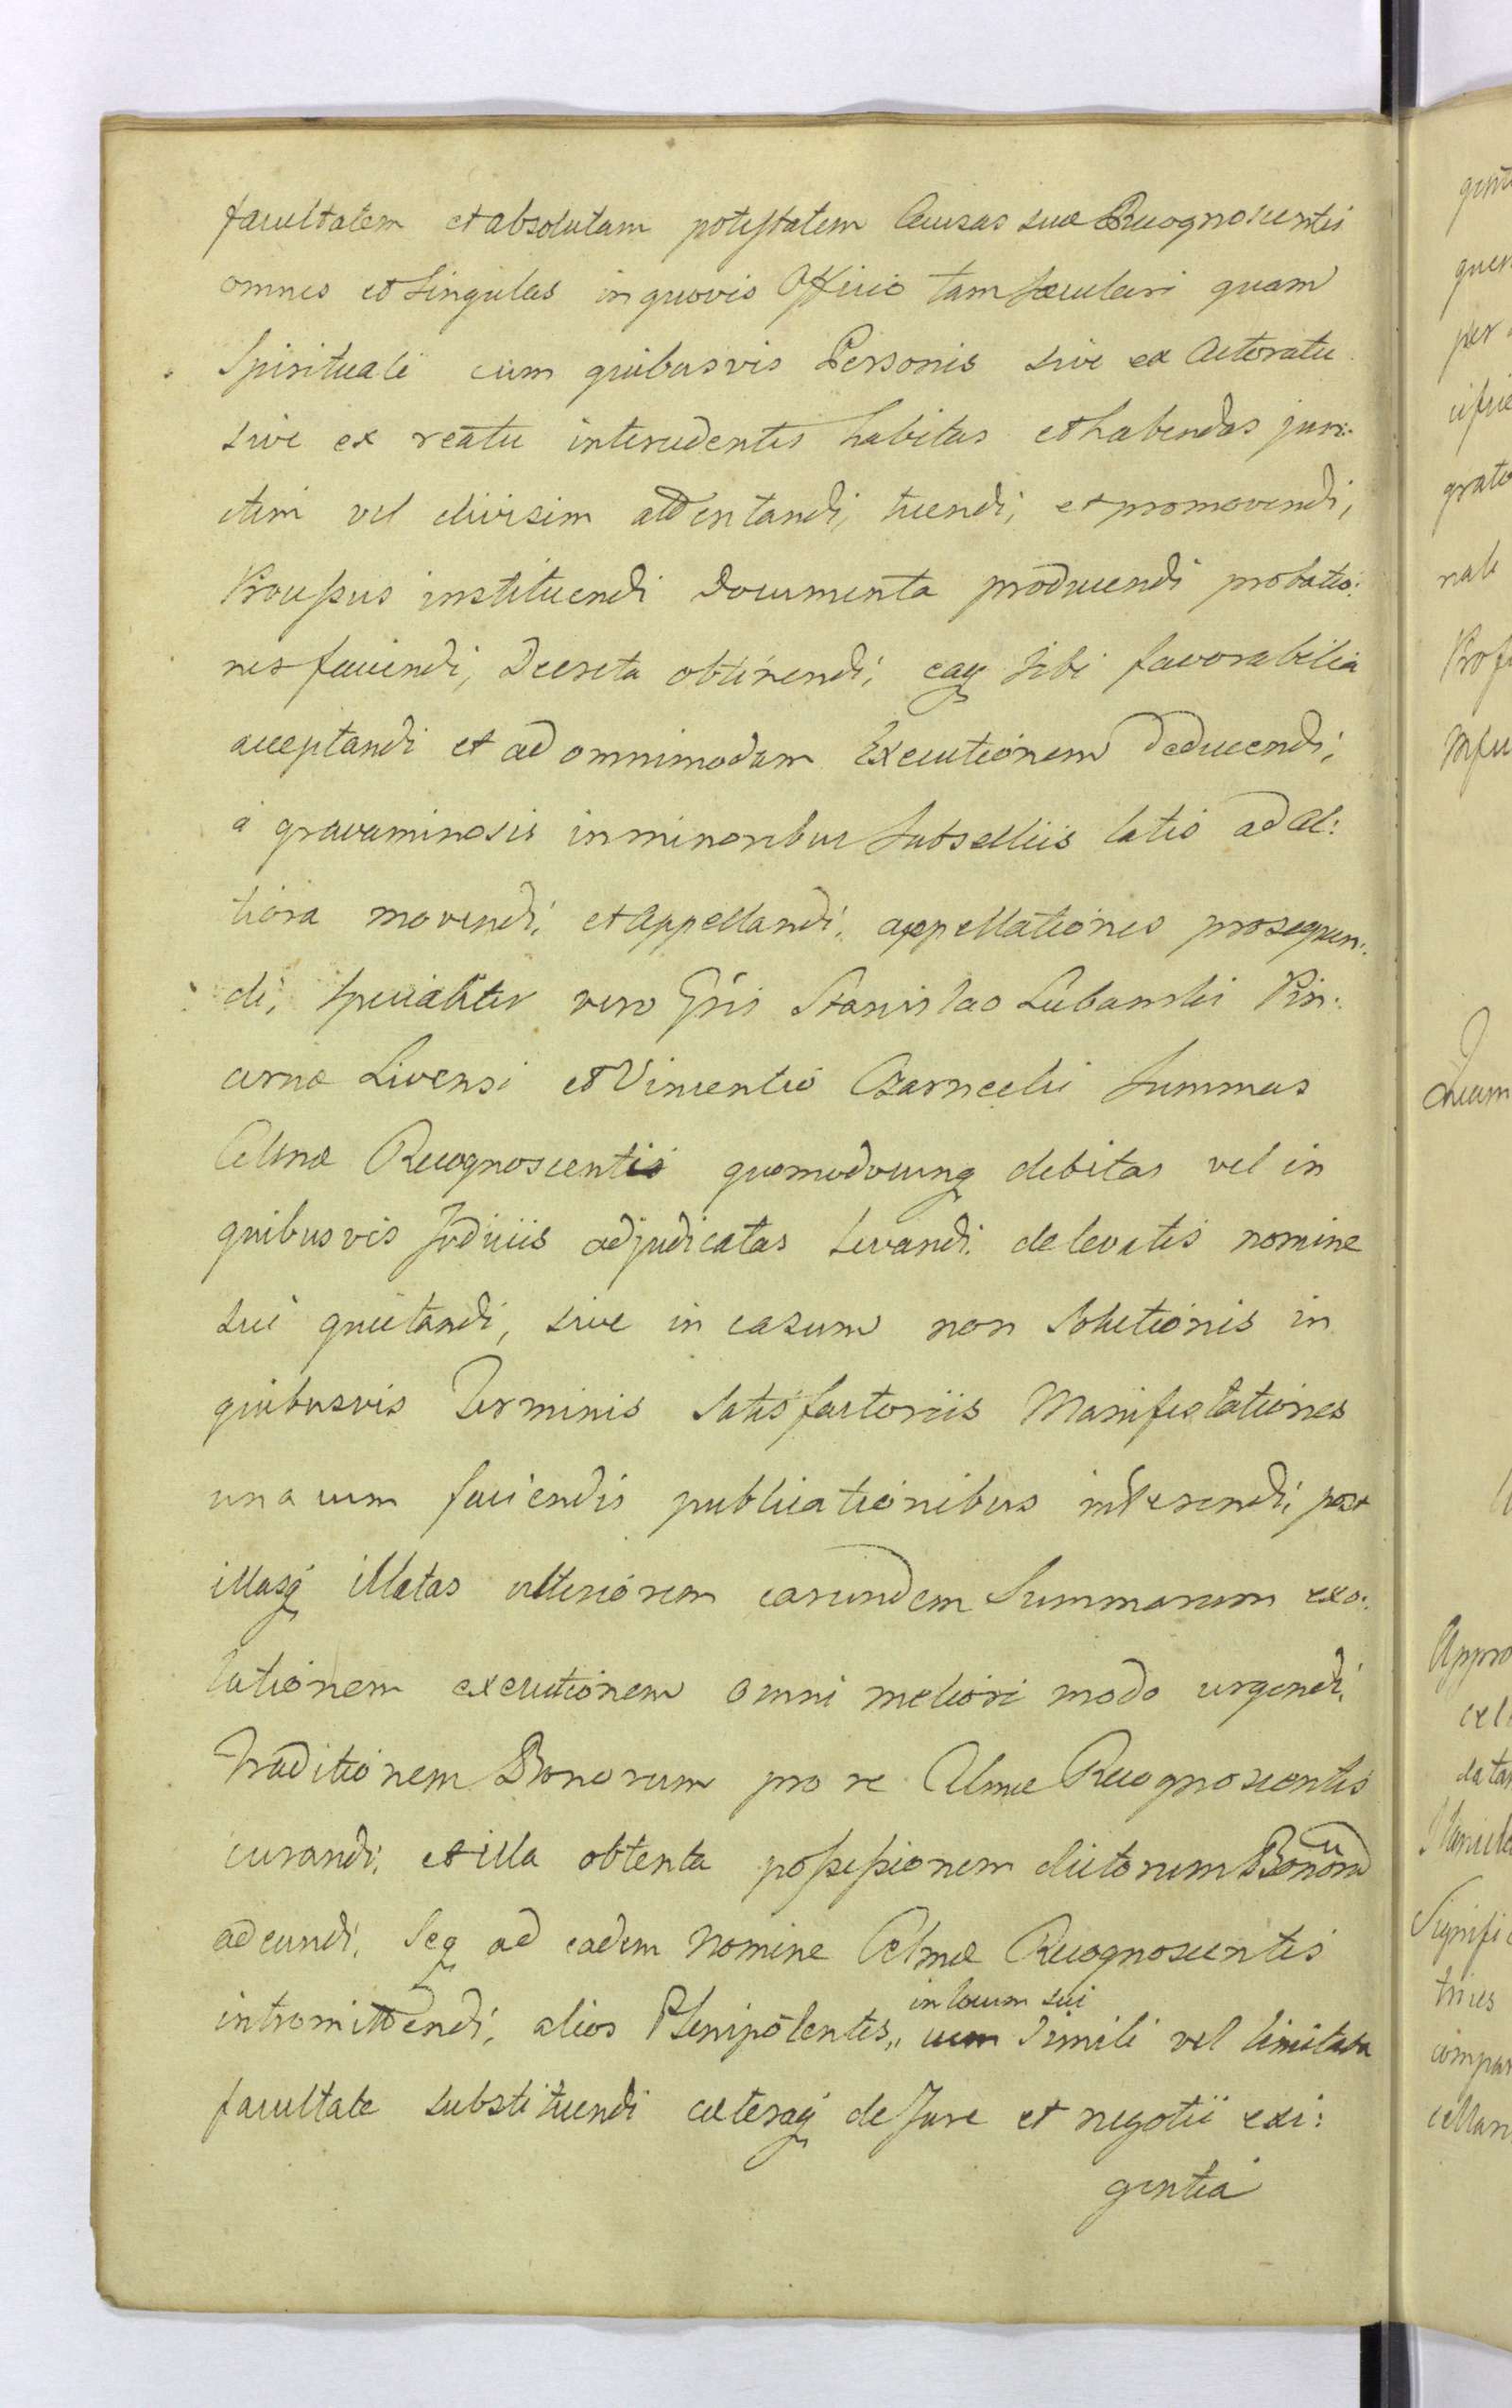 facultatem et absolutam potestatem Causas suæ Recognoscentis
omnes et Singulas in quovis Officio tam Sæculari quam
Spirituali cum quibusvis Personis sive ex Actoratu
sive ex reatu intercedentes habitas et habendas jun:
ctim vel divisim attentandi, tuendi, et promovendi,
Processus instituendi Documenta producendi probatio:
nes faciendi, Decreta obtinendi, eaq sibi favorabilia
acceptandi et ad omnimodam Executionem deducendi,
a gravaminosis in minoribus Subselliis latis ad al:
tiora movendi, et Appellandi, appellationes prosequen:
di, specialiter vero Gsis Stanislao Lubanski Pin:
cernæ Livensi et Vincentio Czarnecki Summas
Almæ Recognoscentis quomodocunq debitas vel in
quibusvis Judiciis adjudicatas levandi de levatis nomine
sui quietandi, sive in casum non Solutionis in
quibusvis Terminis Satisfactoriis Manifestationes
una cum faciendis publicationibus inferendi, post
illasq illatas ulteriorem earundem Summarum exo:
lutionem executionem omni meliori modo urgendi,
Traditionem Bonorum pro re Almæ Recognoscentis
curandi, et illa obtenta possessionem dictorum Bonorum
adeundi, Seq ad eadem Nomine Almæ Recognoscentis
intromittendi, alios Plenipotentes,, in locum sui cum simili vel limitata
facultate substituendi cæteraq de Jure et negotii exi:
gentia